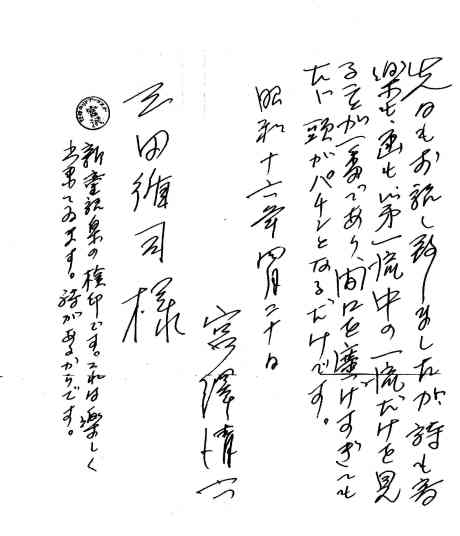 先日もお話し致しましたが、詩も音
楽も、画も、第一流中の一流だけを見
ることが一番であり、間口を廣げすぎても
たゞ頭がパチンとなるだけです。
昭和十六年四月二十日
宮澤清六
三田 司様
宮沢
新童話集の検印です。これは楽しく
出来てゐます。詩があるからです。